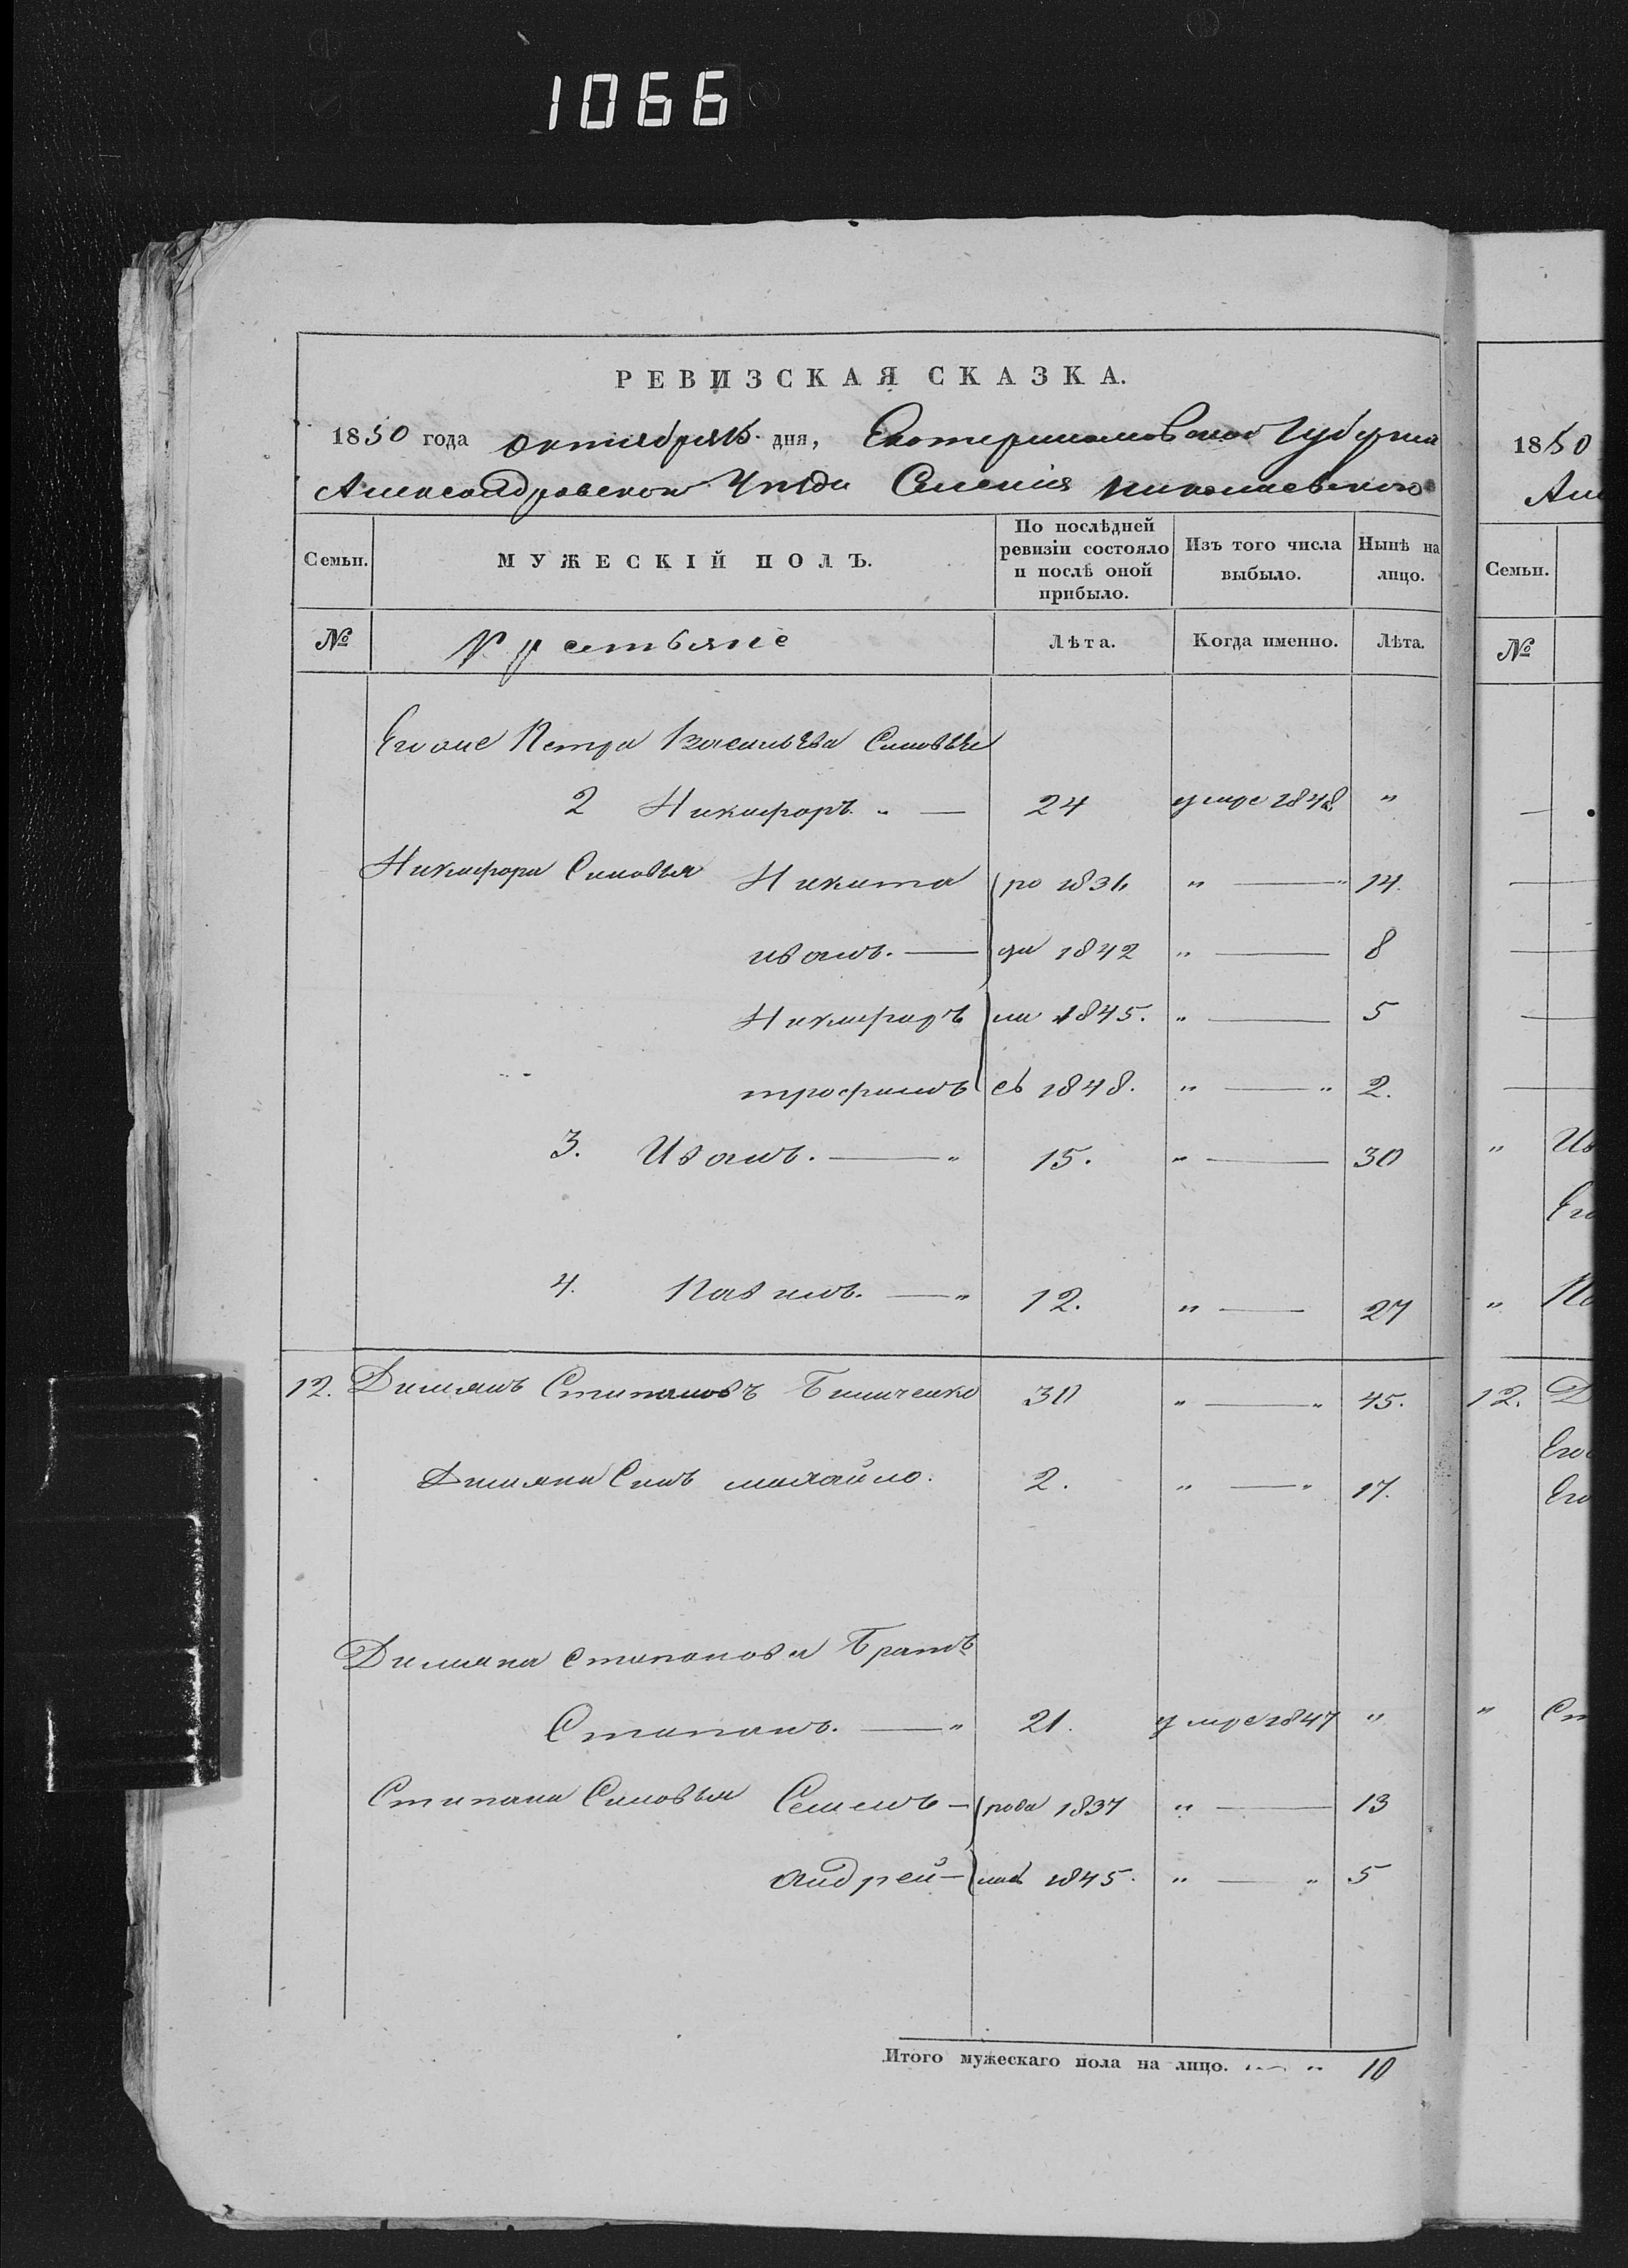 1066
РЕВИЗСКАЯ СКАЗКА.
1850 года октября 15 дня, Екатеринославской Губерніи
Александровскои Уезда Селенія Николаевского
Семьи. МУЖЕСКІЙ ПОЛЪ. По послѣдней ревизіи состояло и послѣ оной прибыло. Изъ того числа выбыло. Нынѣ на лицо.
№ Крестьяне Лѣта. Когда именно. Лѣта.
Егоже Петра Васильева Сыновья
2 Никифоръ " — 24 умре 1848 "
Никифора Сыновья Никита ро 1836 " — " 14.
иванъ. — ди 1842 " — 8
Никифоръ ли 1845. " — 5
трофимъ съ 1848. " — " 2.
3. Иванъ. — " 15. " — 30
4. Павилъ. — " 12. " — 27
12. Димянъ Стипановъ 30 " — " 45.
Димяна Синъ михайло. 2. " — " 17.
Димяна стипанова Братъ
Стипанъ. — " 21. умре 1847 "
Стипана Сыновья Семенъ — роди 1837 " — 13
андрей — лись 1845. " — " 5
Итого мужескаго пола на лицо. " 10
1850
Але
Семьи.
№
" Ив
Его
" Па
12. Д
Его
Его
" Ст